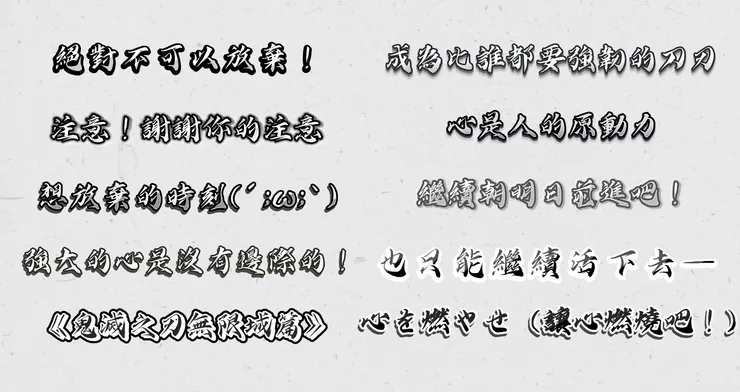 絕對不可以放棄！
注意！謝謝你的注意
想放棄的時刻(´;ω;`)
強大的心是沒有邊際的！
《鬼滅之刃無限城篇》
成為比誰都要強韌的刀刃
心是人的原動力
繼續朝明日前進吧！
也只能繼續活下去—
心を燃やせ（讓心燃燒吧！）